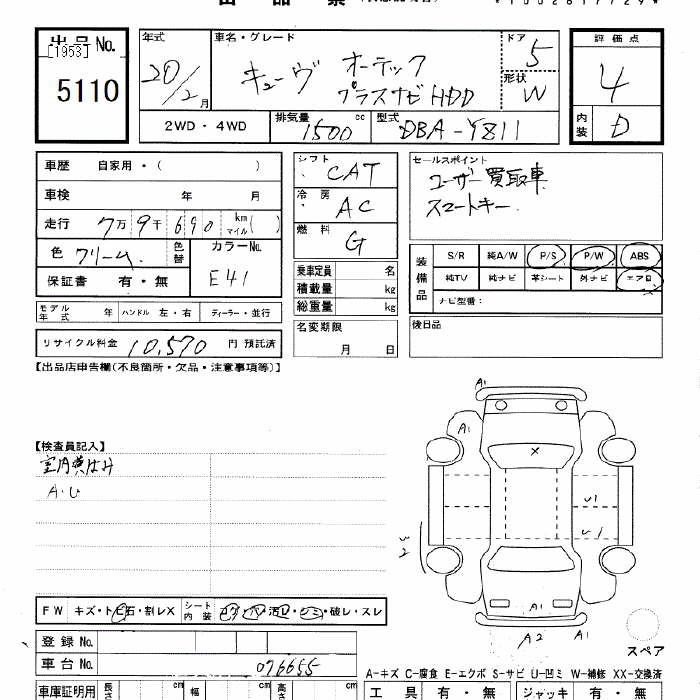 出品票
*1002617729*
出品No.
[1953]
5110
年式
20/2月
車名・グレード
キューヴ オーテック
プラスナビHDD
ドア
5
形状
W
評価点
4
内装
D
2WD・4WD
排気量
1500
cc
型式
DBA-YZ11
車歴 自家用・( )
車検 年 月
走行 7万9千690 km マイル( )
色 クリーム 色替
カラーNo.
E41
保証書 有・無
モデル年式 年 ハンドル 左・右 ディーラー・並行
リサイクル料金 10,570 円 預託済
シフト
CAT
冷房
AC
燃料
G
乗車定員 名
積載量 kg
総重量 kg
名変期限
月 日
セールスポイント
ユーザー買取車
スマートキー
装備品
S/R 純A/W P/S P/W ABS
純TV 純ナビ 革シート 外ナビ エアB
ナビ型番:
後日品
【出品店申告欄(不良箇所・欠品・注意事項等)】
【検査員記入】
A・U
A1
A1
X
U1
U1
U2
A1
A2
A1
スペア
FW キズ・トビ石・割レX シート内装 コゲ・穴・汚レ・シミ・破レ・スレ
登録No.
車台No. 076655
車庫証明用 長さ cm 幅 cm 高さ cm
A-キズ C-腐食 E-エクボ S-サビ U-凹ミ W-補修 XX-交換済
工具 有・無 ジャッキ 有・無